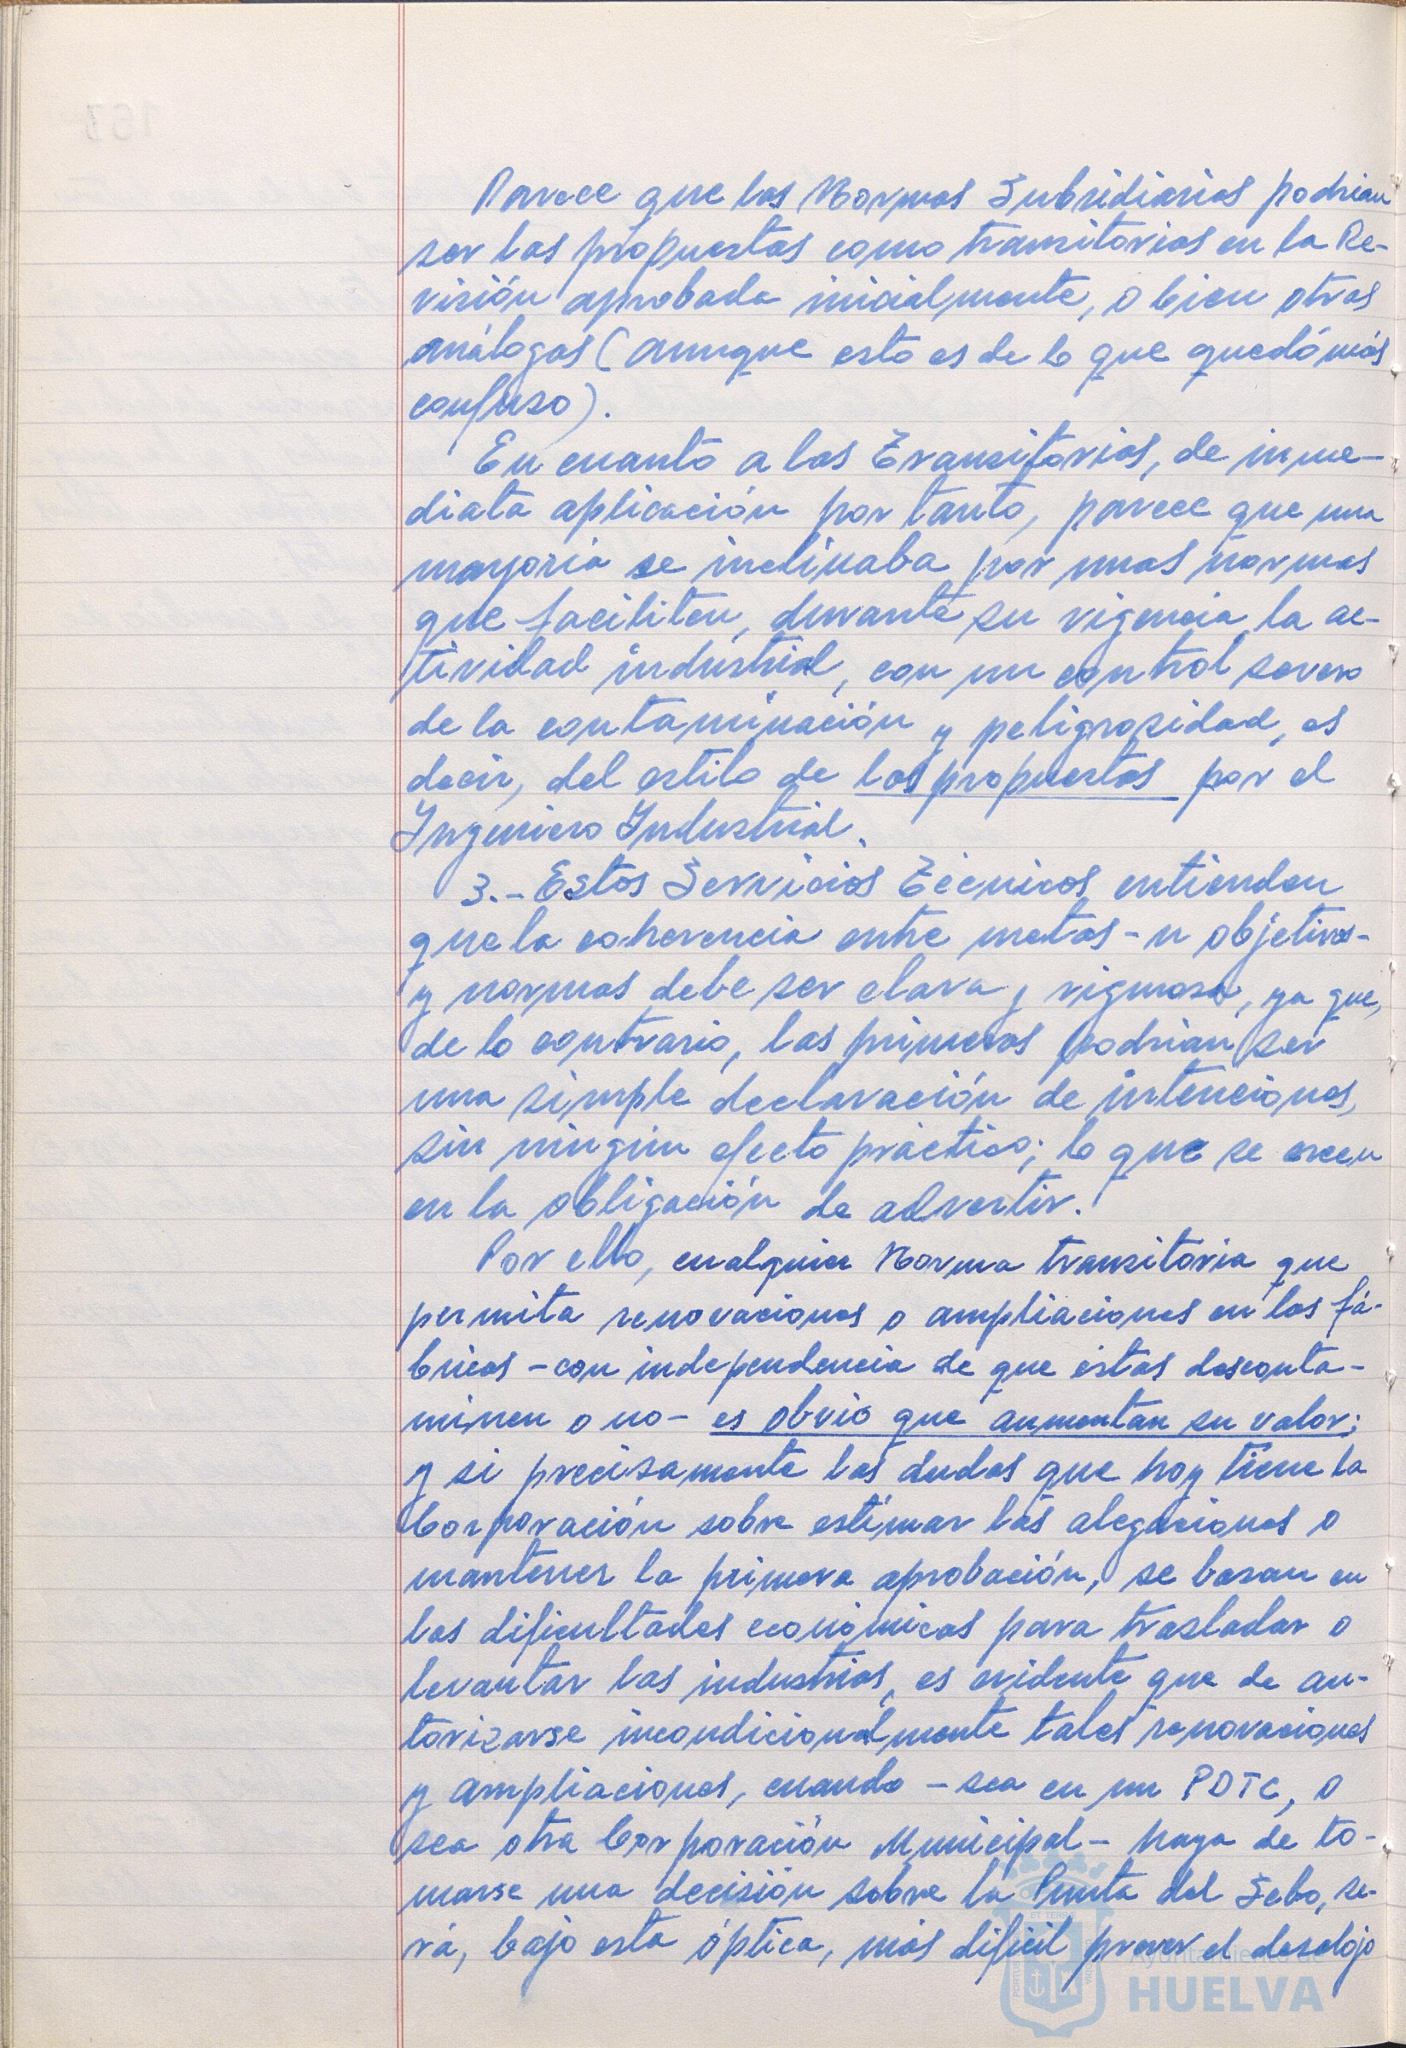 Parece que las Normas Subsidiarias podrían
ser las propuestas como transitorias en la Re-
visión aprobada inicialmente, o bien otras
análogas (aunque esto es de lo que quedó más
confuso).
En cuanto a las Transitorias, de inme-
diata aplicación por tanto, parece que una
mayoría se inclinaba por unas normas
que faciliten, durante su vigencia, la ac-
tividad industrial, con un control severo
de la contaminación y peligrosidad, es
decir, del estilo de las propuestas por el
Ingeniero Industrial.
3.- Estos Servicios Técnicos entienden
que la coherencia entre metas - u objetivos -
y normas debe ser clara y rigurosa, ya que,
de lo contrario, las primeras podrían ser
una simple declaración de intenciones,
sin ningún efecto práctico; lo que se creen
en la obligación de advertir.
Por ello, cualquier Norma transitoria que
permita renovaciones o ampliaciones en las fá-
bricas - con independencia de que éstas desconta-
minen o no - es obvio que aumentan su valor;
y si precisamente las dudas que hoy tiene la
Corporación sobre estimar las alegaciones o
mantener la primera aprobación, se basan en
las dificultades económicas para trasladar o
levantar las industrias, es evidente que de au-
torizarse incondicionalmente tales renovaciones
y ampliaciones, cuando - sea en un PDTC, o
sea otra Corporación Municipal - haya de to-
marse una decisión sobre la Punta del Sebo, se-
rá, bajo esta óptica, más difícil prever el desalojo
Ayuntamiento de
HUELVA